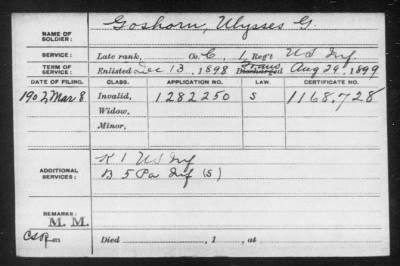 NAME OF SOLDIER: Goshorn, Ulysses G.
SERVICE: Late rank, Co. C, 1 Reg't US Inf
TERM OF SERVICE: Enlisted Dec 13, 1898 Discharged Trans Aug 29, 1899
DATE OF FILING. CLASS. APPLICATION NO. LAW. CERTIFICATE NO.
1902, Mar 8 Invalid, 1282250 S 1168,728
Widow,
Minor,
ADDITIONAL SERVICES: K 1 US Inf
B 5 Pa Inf (S)
REMARKS:
M. M.
Died , 1 , at